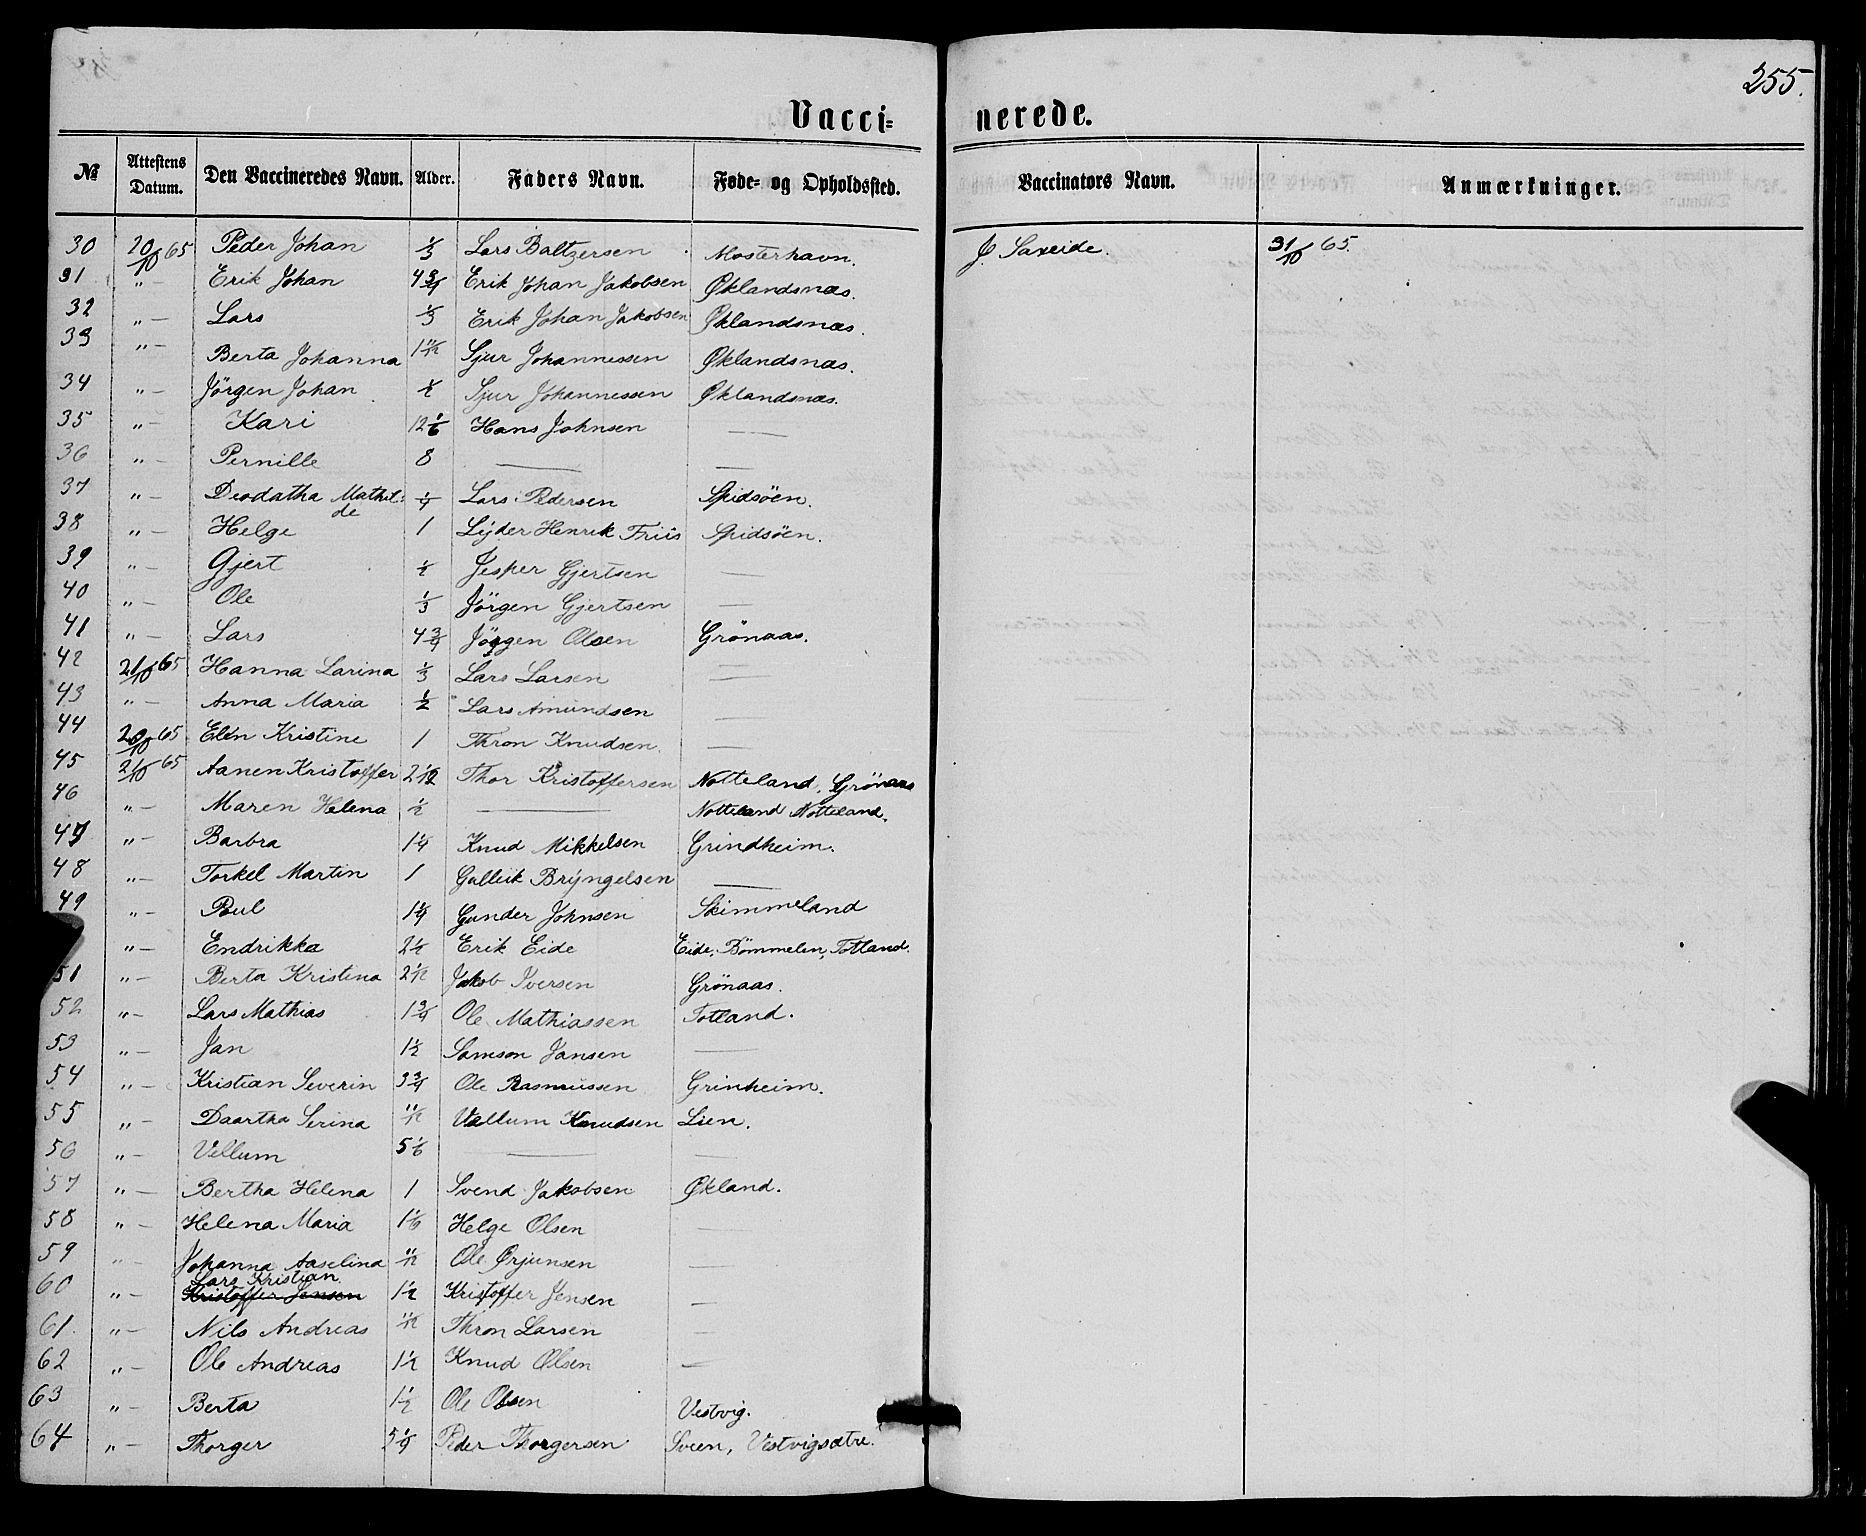 255.
Vacci- nerede.
№ Attestens Datum. Den Vaccineredes Navn. Alder. Faders Navn. Føde- og Opholdssted. Vaccinators Navn. Anmærkninger.
30 20/10 65 Peder Johan 1/3 Lars Baltzersen Mosterhavn. J. Saxeide. 31/10 65.
31 " — Erik Johan 4 3/4 Erik Johan Jakobsen Øklandsnæs.
32 " — Lars 1/3 Erik Johan Jakobsen Øklandsnæs.
33 " — Berta Johanna 1 11/12 Sjur Johannessen Øklandsnæs.
34 " — Jörgen Johan 1/2 Sjur Johannessen Øklandsnæs.
35 " — Kari 12 1/6 Hans Johnsen —
36 " — Pernille 8 — —
37 " — Deodatha Mathil- 1/4 Lars Pedersen Spidsöen.
de
38 " — Helge 1 Lyder Henrik Friis Spidsöen.
39 " — Gjert 1/2 Jesper Gjertsen —
40 " — Ole 1/3 Jörgen Gjertsen —
41 " — Lars 4 3/4 Jörgen Olsen Grönaas.
42 21/10 65 Hanna Larina 1/3 Lars Larsen —
43 " — Anna Maria 1/2 Lars Amundsen —
44 20/10 65 Elen Kristine 1 Thron Knudsen. —
45 21/10 65 Aanen Kristoffer 2 1/12 Thor Kristoffersen Notteland, Grönaas
46 " — Maren Helena 1/2 — Notteland Notteland.
47 " — Barbra 1 1/4 Knud Mikkelsen Grindheim.
48 " — Torkel Martin 1 Gulleik Bryngelsen —
49 " — Poul 1 1/4 Gunder Johnsen Skimmeland
" — Endrikka 2 1/2 Erik Eide Eide, Bömmelen, Totland.
51 " — Berta Kristina 2 1/12 Jakob Iversen Grönaas.
52 " — Lars Mathias 1 3/4 Ole Mathiassen Totland.
53 " — Jan 1 1/2 Samson Jansen —
54 " — Kristian Severin 3 3/4 Ole Rasmussen Grinheim.
55 " — Daartha Serina 11/12 Vellum Knudsen Lien.
56 " — Vellum 5 1/6 — —
57 " — Bertha Helena 1 Svend Jakobsen Økland.
58 " — Helena Maria 1 1/6 Helge Olsen —
59 " — Johanna Aaselina 11/12 Ole Ørjunsen —
Lars Kristian
60 " — Kristoffer Jensen 1 1/2 Kristoffer Jensen —
61. " — Nils Andreas 11/12 Thron Larsen —
62 " — Ole Andreas 1 1/2 Knud Olsen —
63 " — Berta 1 1/2 Ole Olsen Vestvig.
64 " — Thorger 5 1/4 Peder Thorgersen Sveen, Vestvigsætre.